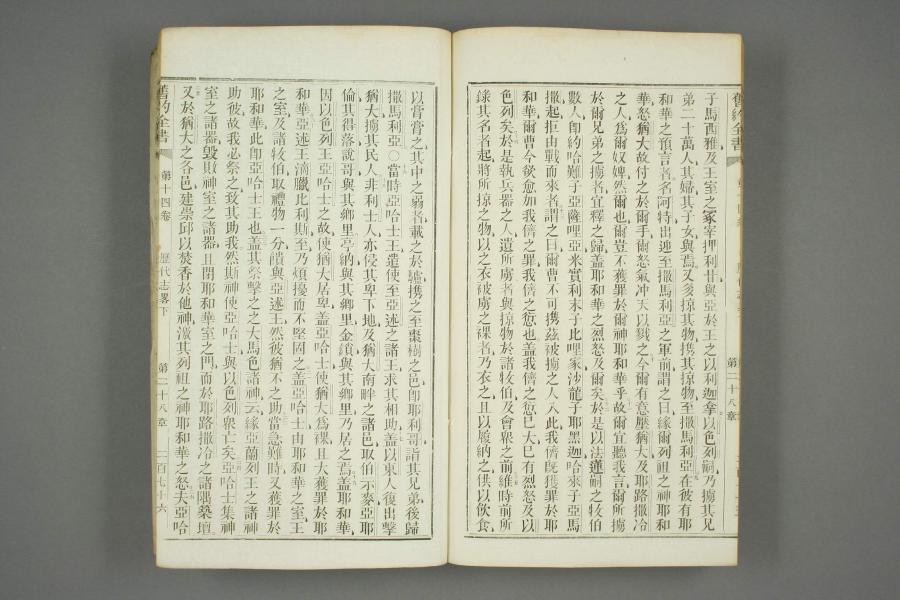 子馬西雅及王室之冢宰押利甘與亞於王之以利迦拿以色列嗣乃擄其兄
弟二十萬人其婦其子女與焉又多掠其物携其掠物至撒馬利亞在彼有耶
和華之預言者名阿特出迎至撒馬利亞之軍前謂之曰緣爾列祖之神耶和
華怒猶大故付之於爾手爾怒氣冲天以戮之今爾有意壓猶大及耶路撒冷
之人爲爾奴婢然爾也爾豈不獲罪於爾神耶和華乎故爾宜聽我言爾所擄
於爾兄弟之擄者宜釋之歸蓋耶和華之烈怒及爾矣於是以法蓮嗣之牧伯
數人即約哈難子亞薩哩亞米實利末子比哩家沙龍子耶黑迦哈來子亞馬
撒起拒由戰而來者謂之曰爾曹不可携茲被擄之人入此我儕既獲罪於耶
和華爾曹今欲愈加我儕之罪我儕之愆也蓋我儕之愆已大巳有烈怒及以
色列矣於是執兵器之人遺所虜者與掠物於諸牧伯及會衆之前維時前所
錄其名者起將所掠之物以之衣被虜之裸者乃衣之且以履納之供以飲食
以膏膏之其中之弱者載之於驢携之至棗樹之邑即耶利哥詣其兄弟後歸
撒馬利亞○當時亞哈士王遣使至亞述之諸王求其相助蓋以東人復出擊
猶大擄其民人非利士人亦侵其卑下地及猶大南畔之諸邑取伯示麥亞耶
倫其得落說哥與其鄉里亭納與其鄉里金鎖與其鄉里乃居之焉蓋耶和華
因以色列王亞哈士之故使猶大居卑蓋亞哈士使猶大爲裸且大獲罪於耶
和華亞述王滴臘比利斯至乃煩擾而不堅固之蓋亞哈士由耶和華之室王
之室及諸牧伯取禮物一分饋與亞述王然彼猶不之助當急難時又獲罪於
耶和華此即亞哈士王也蓋其祭擊之之大馬色諸神云緣亞蘭列王之諸神
助彼故我必祭之致其助我然斯神使亞哈士與以色列衆亡矣亞哈士集神
室之諸器毁敗神室之諸器且閉耶和華室之門而於耶路撒冷之諸隅築壇
又於猶大之各邑建崇邱以焚香於他神激其列祖之神耶和華之怒夫亞哈
舊約全書
第十四卷
歷代志畧下
第二十八章
二百七十六
舊約全書
第二十八章